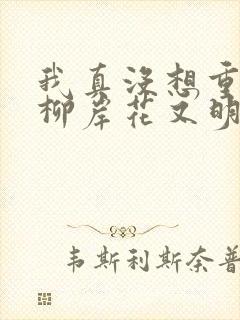 我真没想重
柳岸花又明
韦斯利斯奈普